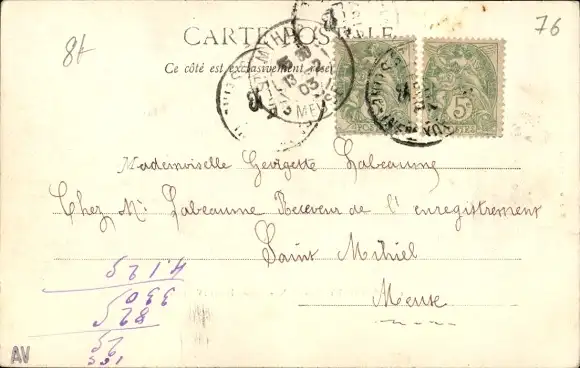 84
76
CARTE POSTALE
Ce côté est exclusivement réser
MEU
03
5c
POSTES
Mademoiselle Georgette Labeaume
Chez Mr Labeaume Receveur de l'enregistrement
Saint Mihiel
Meuse
4.125
330
825
AV